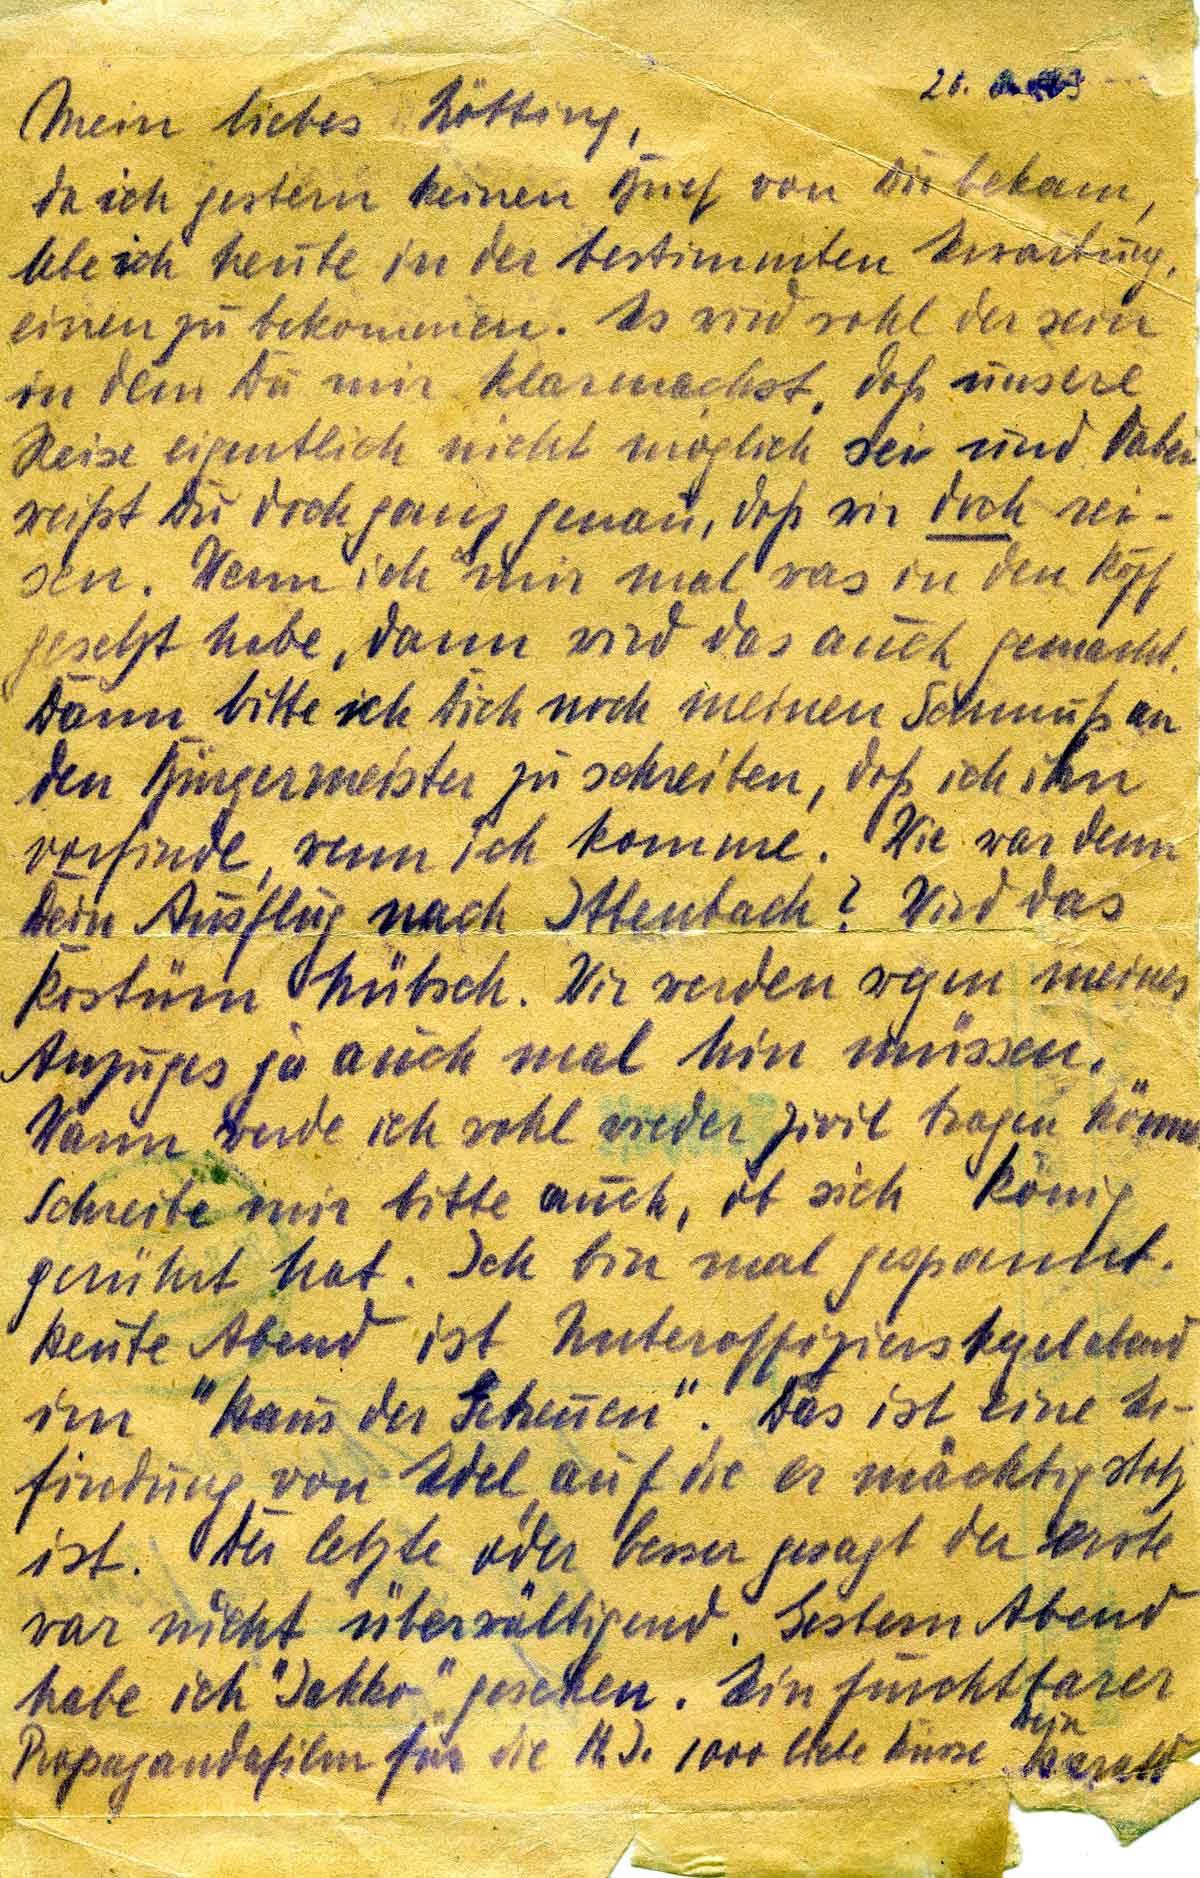 20.
Mein liebes
da ich gestern keinen Brief von Dir bekam,
lebe ich heute in der bestimmten Erwartung,
einen zu bekommen. Es wird wohl der sein
in dem Du mir klarmachst, daß unsere
Reise eigentlich nicht möglich sei und Dabei
weißt Du doch ganz genau, daß wir doch rei-
sen. Wenn ich mir mal was in den Kopf
gesetzt habe, dann wird das auch gemacht.
Dann bitte ich Dich noch meinen an
den Bürgermeister zu schreiben, daß ich ihn
vorfinde, wenn ich komme. Wie war denn
Dein Ausflug nach Ittenbach? Wird das
Kostüm hübsch. Wir werden wegen meines
Anzuges ja auch mal hin müssen.
Wann werde ich wohl wieder Zivil tragen können
Schreibe mir bitte auch, ob sich König
gerührt hat. Ich bin mal gespannt.
Heute Abend ist Unteroffizierskegelabend
im "Haus der". Das ist eine Er-
findung von Edel, auf die er mächtig stolz
ist. Der letzte oder besser gesagt der erste
war nicht überwältigend. Gestern Abend
habe ich "Jakko" gesehen. Ein furchtbarer
Propagandafilm für die H.J. 1000 liebe Küsse Dein
Harald